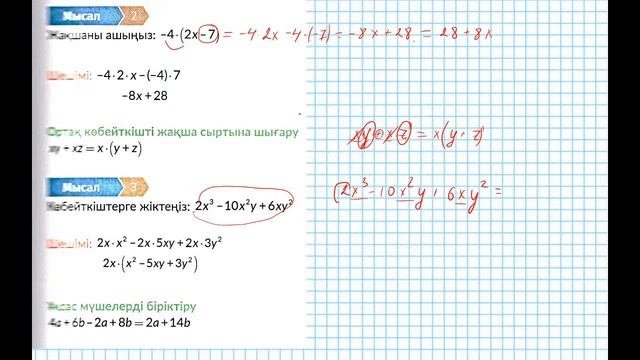 Мысал 2
Жақшаны ашыңыз: −4·(2x−7) = −4·2x −4·(−7) = −8x+28 = 28+8x
Шешімі: −4·2·x−(−4)·7
−8x+28
Ортақ көбейткішті жақша сыртына шығару
xy + xz = x·(y+z)
xy+xz = x(y+z)
Мысал 3
Көбейткіштерге жіктеңіз: 2x³−10x²y+6xy²
(2x³−10x²y+6xy² =
Шешімі: 2x·x²−2x·5xy+2x·3y²
2x·(x²−5xy+3y²)
Ұқсас мүшелерді біріктіру
4a+6b−2a+8b=2a+14b